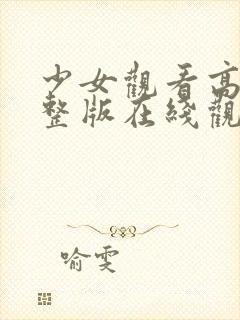 少女觀看高
整版在綫觀
喻雯